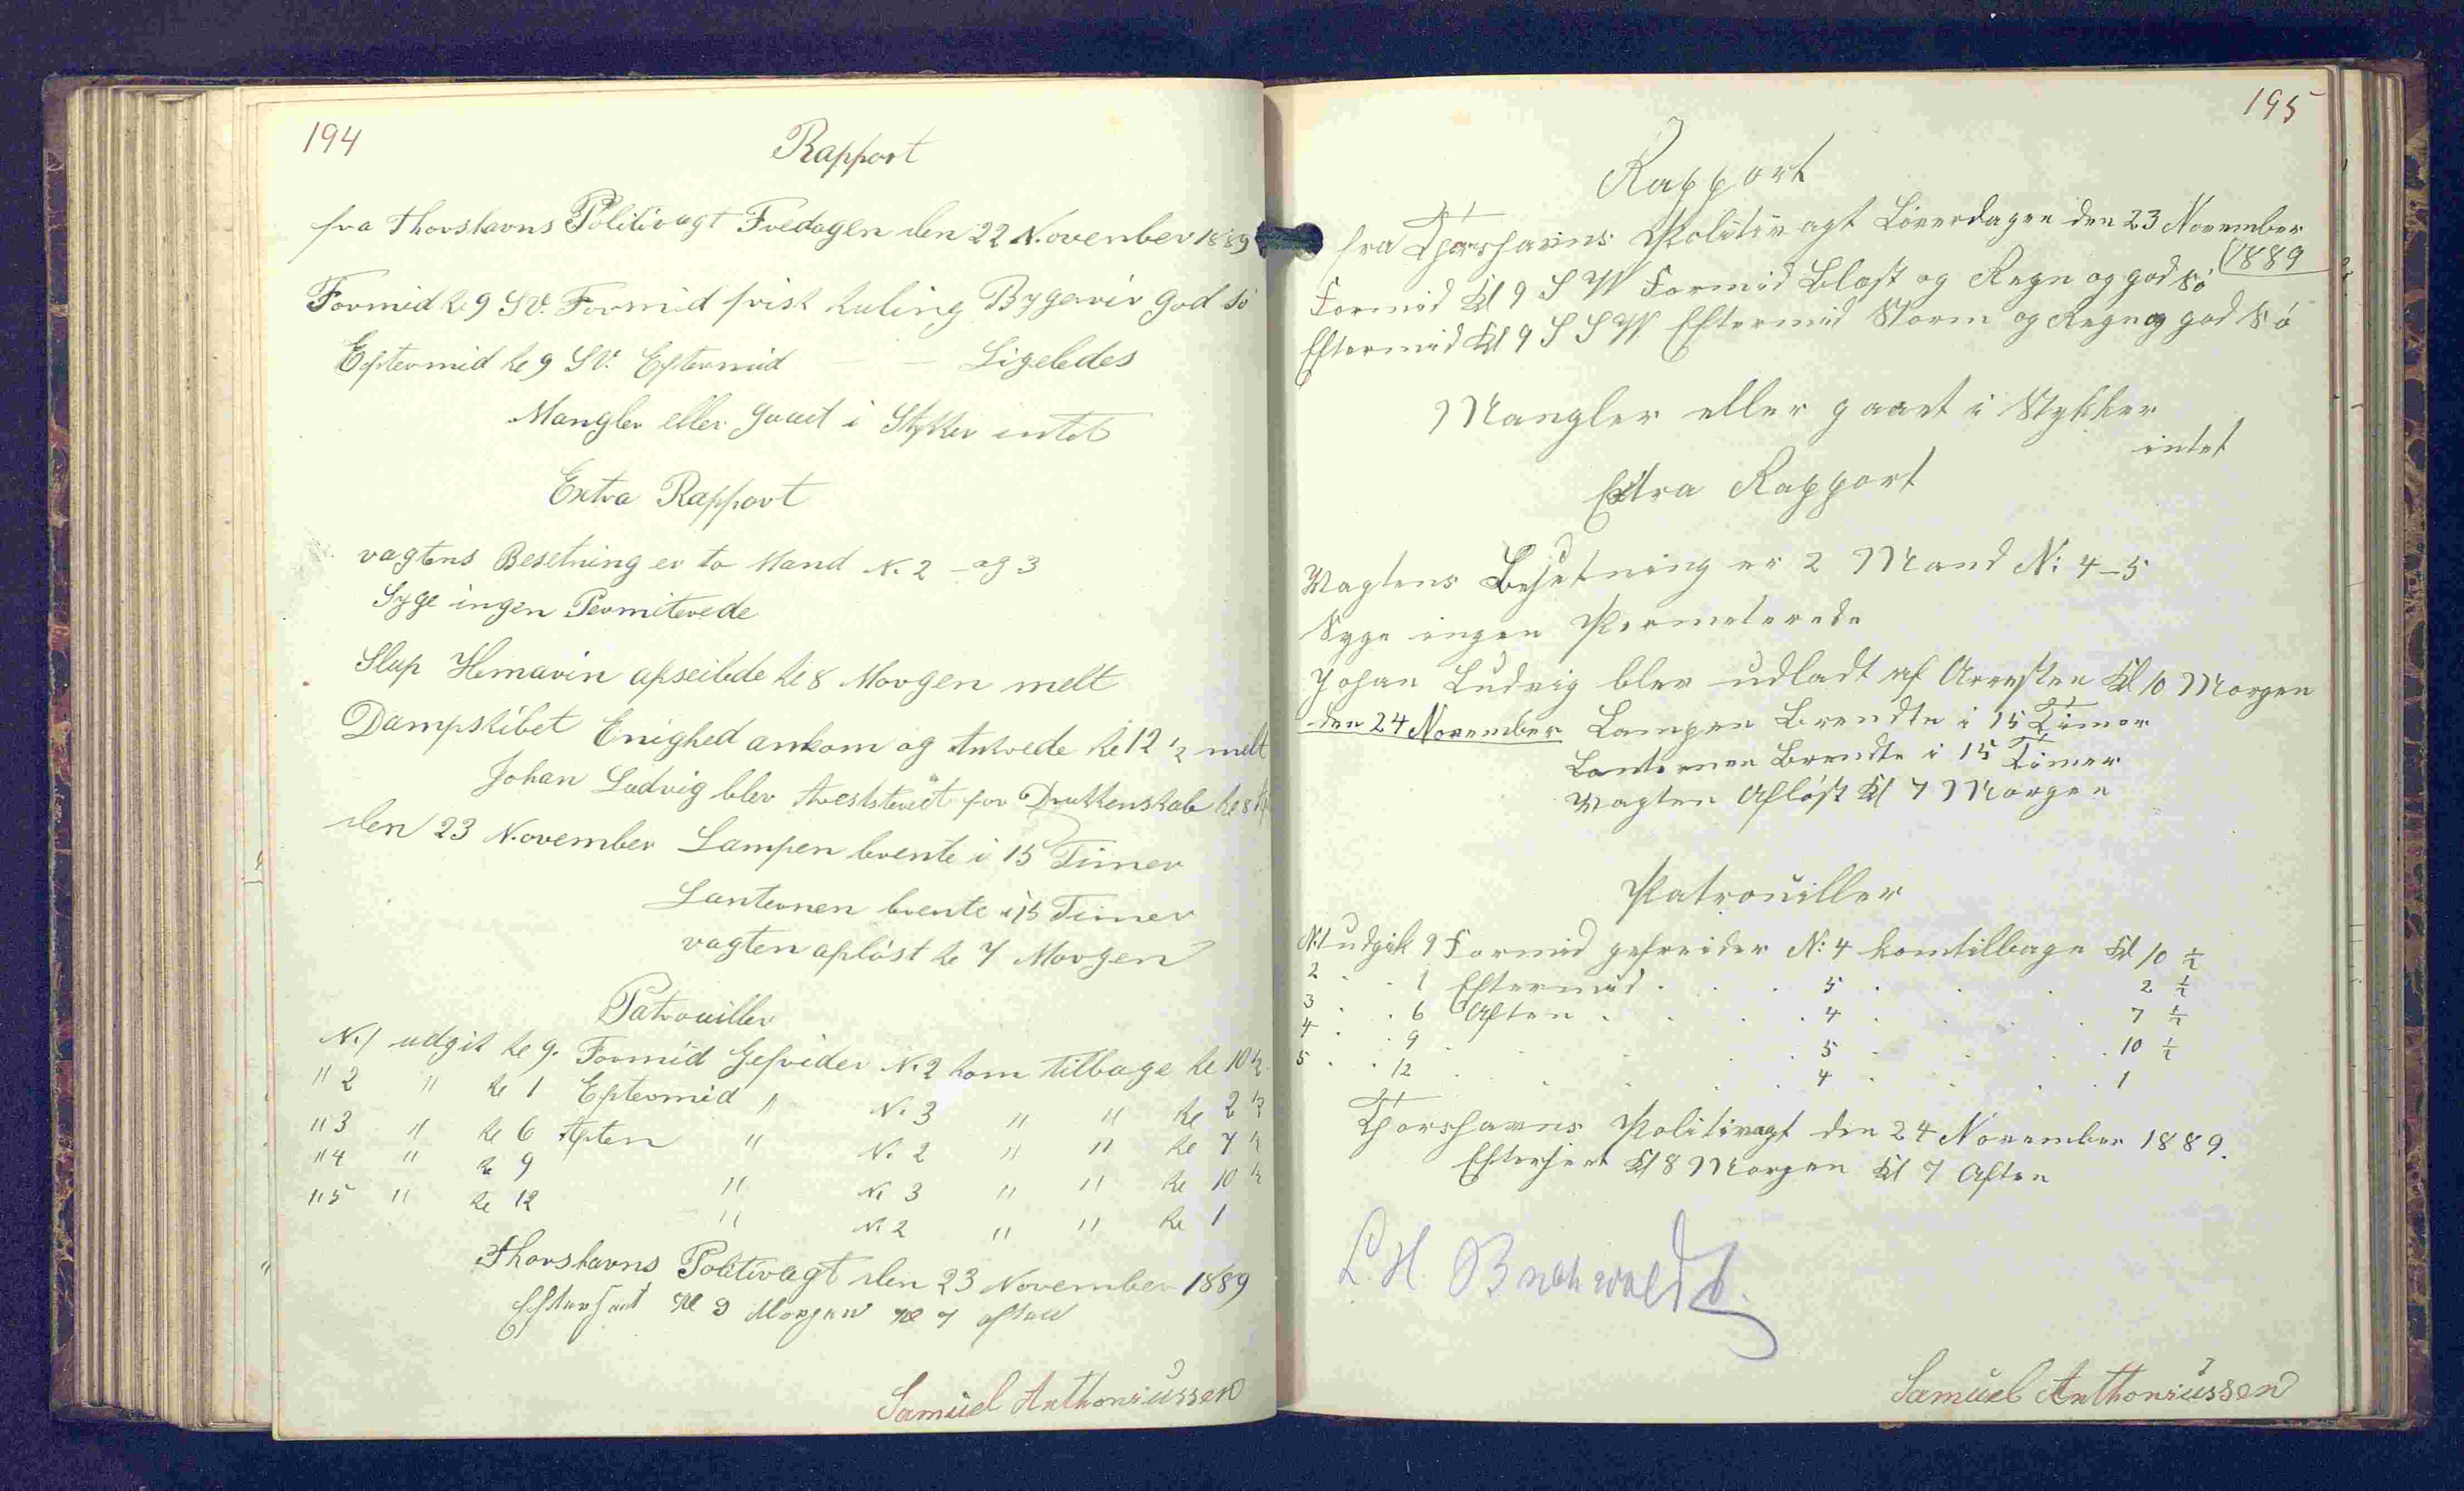 194
Rapport
fra Thorshavns Politivagt Fredagen den 22 November 1889
Formid kl 9 SV. Formid frisk kuling Bygeveir god Sö
Eftermid kl 9 SV. Eftermid — — Ligeledes
Mangler eller Gaaet i Stykker intet
Extra Rapport
vagtens Besetning er to Mand N. 2 - og 3
Syge ingen Permiterede
Slup Hemavin afseilede kl 8 Morgen melt
Dampskibet Enighed ankom og kl 12 ½ melt
Johan Ludvig blev for Drukkenskab kl 8
den 23 November Lampen brente i 15 Timer
Lanternen brente i 15 Timer
vagten aflöst kl 7 Morgen
Patrouiller
N. 1 udgik kl 9. Formid Gefrider N. 2 kom tilbage kl 10 ½
" 2 " kl 1 Eftermid " N. 3 " " kl 2 ½
" 3 " kl 6 Aften " N. 2 " " kl 7 ½
" 4 " kl 9 " N. 3 " " kl 10 ½
" 5 " kl 12 " N. 2 " " kl 1
Thorshavns Politivagt den 23 November 1889
Efterseet Kl 9 Morgen Kl 7 aften
Samuel Anthoniussen
195
Rapport
fra Thorshavns Politivagt Löverdagen den 23 November
1889
Formid Kl 9 S W Formid Blæst og Regn og god Sö
Eftermid Kl 9 S S W. Eftermid Storm og Regn og god Sö
Mangler eller gaaet i Stykker
intet
Extra Rapport
Vagtens Besetning er 2 Mand N: 4-5
Syge ingen Permeterede
Johan Ludvig blev udladt af Arresten Kl 10 Morgen
den 24 November Lampen Brendte i 15 Timer
Lanternen Brendte i 15 Timer
Vagten Aflöst Kl 7 Morgen
Patrouiller
N:1 udgik 9 Formid gefreider N: 4 kom tilbage Kl 10 ½
2 . . 1 Eftermid . . . 5 . . . 2 ½
3 . . 6 Aften . . . 4 . . . 7 ½
4 . . 9 . . . 5 . . . 10 ½
5 . . 12 . . . 4 . . . 1
Thorshavns Politivagt den 24 November 1889.
Efterseet Kl 8 Morgen Kl 7 Aften
L. H. Buchwaldt.
Samuel Anthoniussen